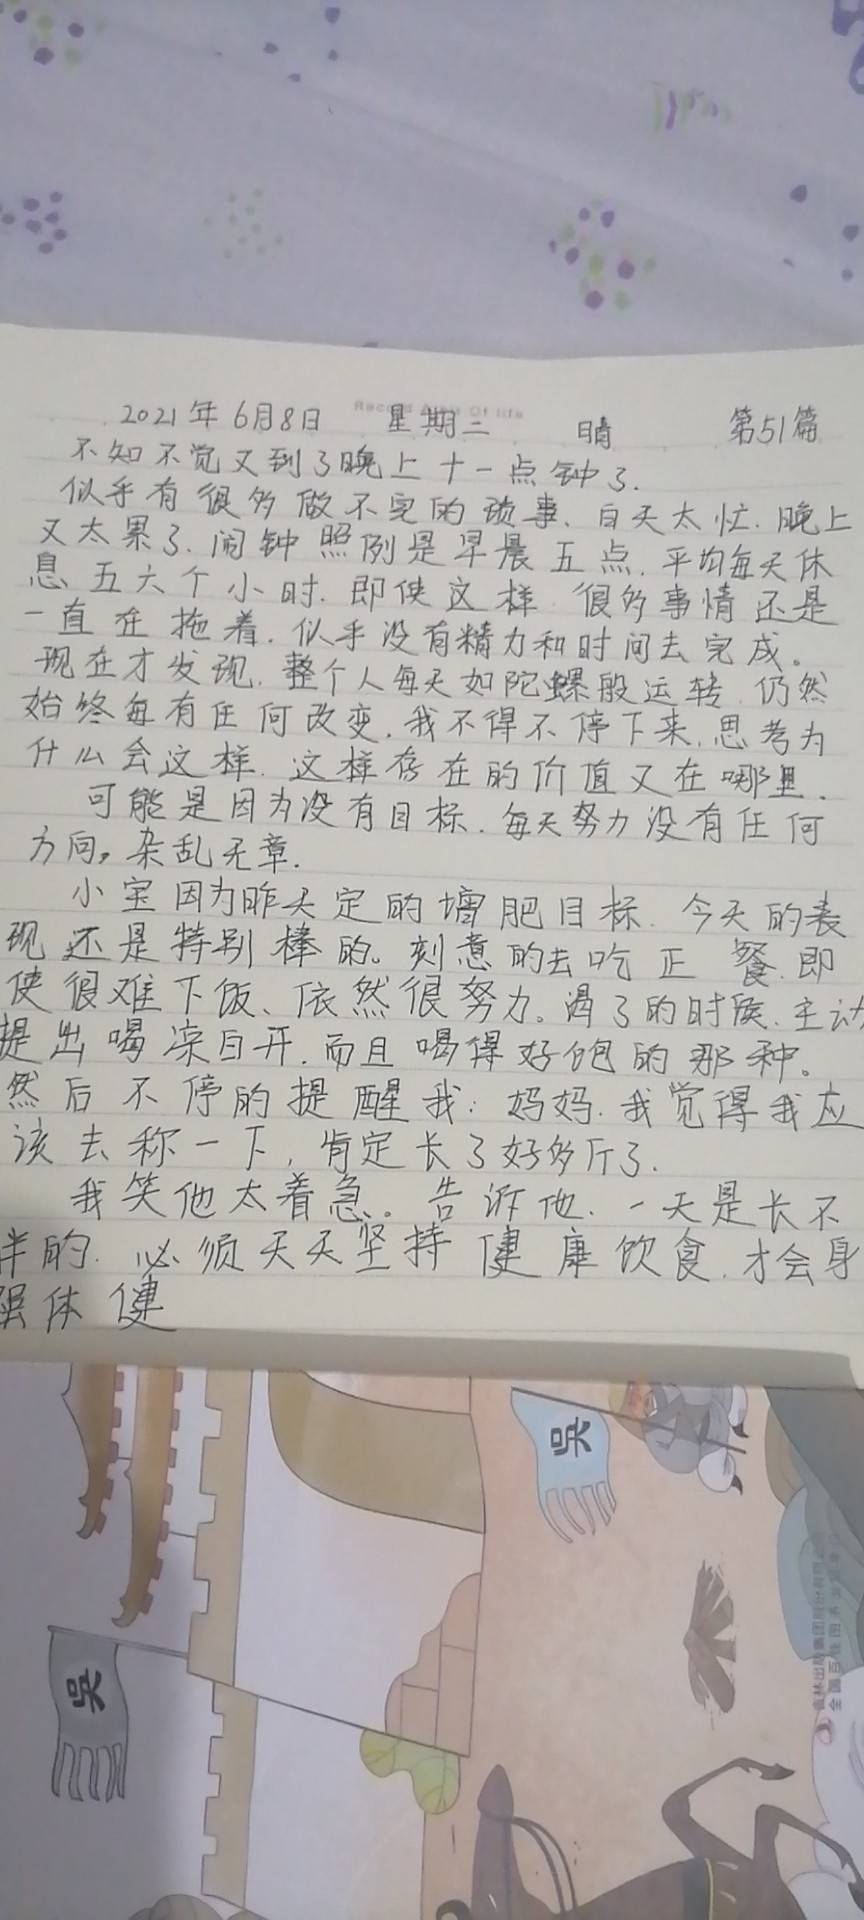 2021年6月8日 星期二 晴 第51篇
不知不觉又到了晚上十一点钟了.
似乎有很多做不完的琐事、白天太忙.晚上
又太累了.闹钟照例是早晨五点.平均每天休
息五六个小时.即使这样.很多事情还是
一直在拖着.似乎没有精力和时间去完成。
现在才发现.整个人每天如陀螺般运转.仍然
始终每有任何改变.我不得不停下来.思考为
什么会这样.这样存在的价值又在哪里.
可能是因为没有目标.每天努力没有任何
方向,杂乱无章.
小宝因为昨天定的增肥目标.今天的表
现还是特别棒的。刻意的去吃正餐.即
使很难下饭、依然很努力。渴了的时候.主动
提出喝凉白开.而且喝得好饱的那种。
然后不停的提醒我:妈妈.我觉得我应
该去称一下,肯定长了好多斤了.
我笑他太着急。告诉他.一天是长不
胖的.必须天天坚持健康饮食.才会身
强体健
吴
吴
全国百佳图书出版单位